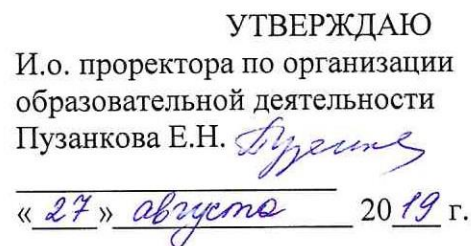 УТВЕРЖДАЮ
И.о. проректора по организации
образовательной деятельности
Пузанкова Е.Н.
«27» августа 2019 г.